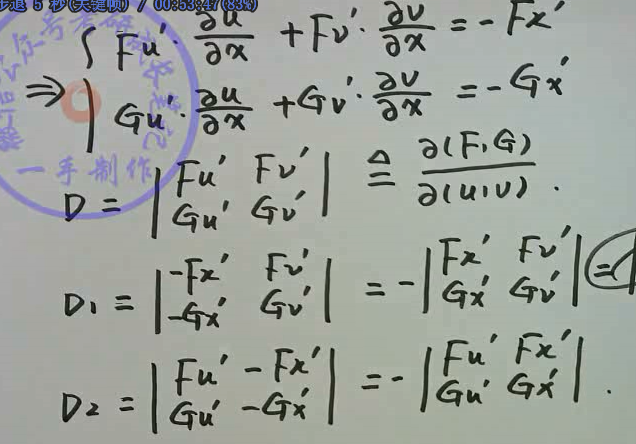 步退 5 秒(关键帧) / 00:53:47(83%)
{ Fu′·∂u/∂x + Fv′·∂v/∂x = -Fx′
⇒ Gu′·∂u/∂x + Gv′·∂v/∂x = -Gx′
D = |Fu′ Fv′; Gu′ Gv′| ≜ ∂(F,G)/∂(u,v) .
D₁ = |-Fx′ Fv′; -Gx′ Gv′| = -|Fx′ Fv′; Gx′ Gv′| =
D₂ = |Fu′ -Fx′; Gu′ -Gx′| = -|Fu′ Fx′; Gu′ Gx′| .
一手制作